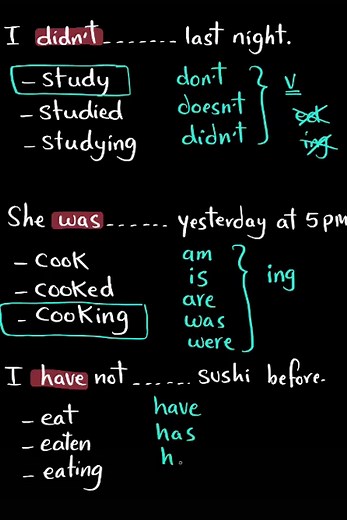 I didn't ....... last night.
- study
- studied
- studying
don't
doesn't
didn't
V
ed
ing
She was ...... yesterday at 5 PM
- cook
- cooked
- cooking
am
is
are
was
were
ing
I have not ...... sushi before.
- eat
- eaten
- eating
have
has
h.